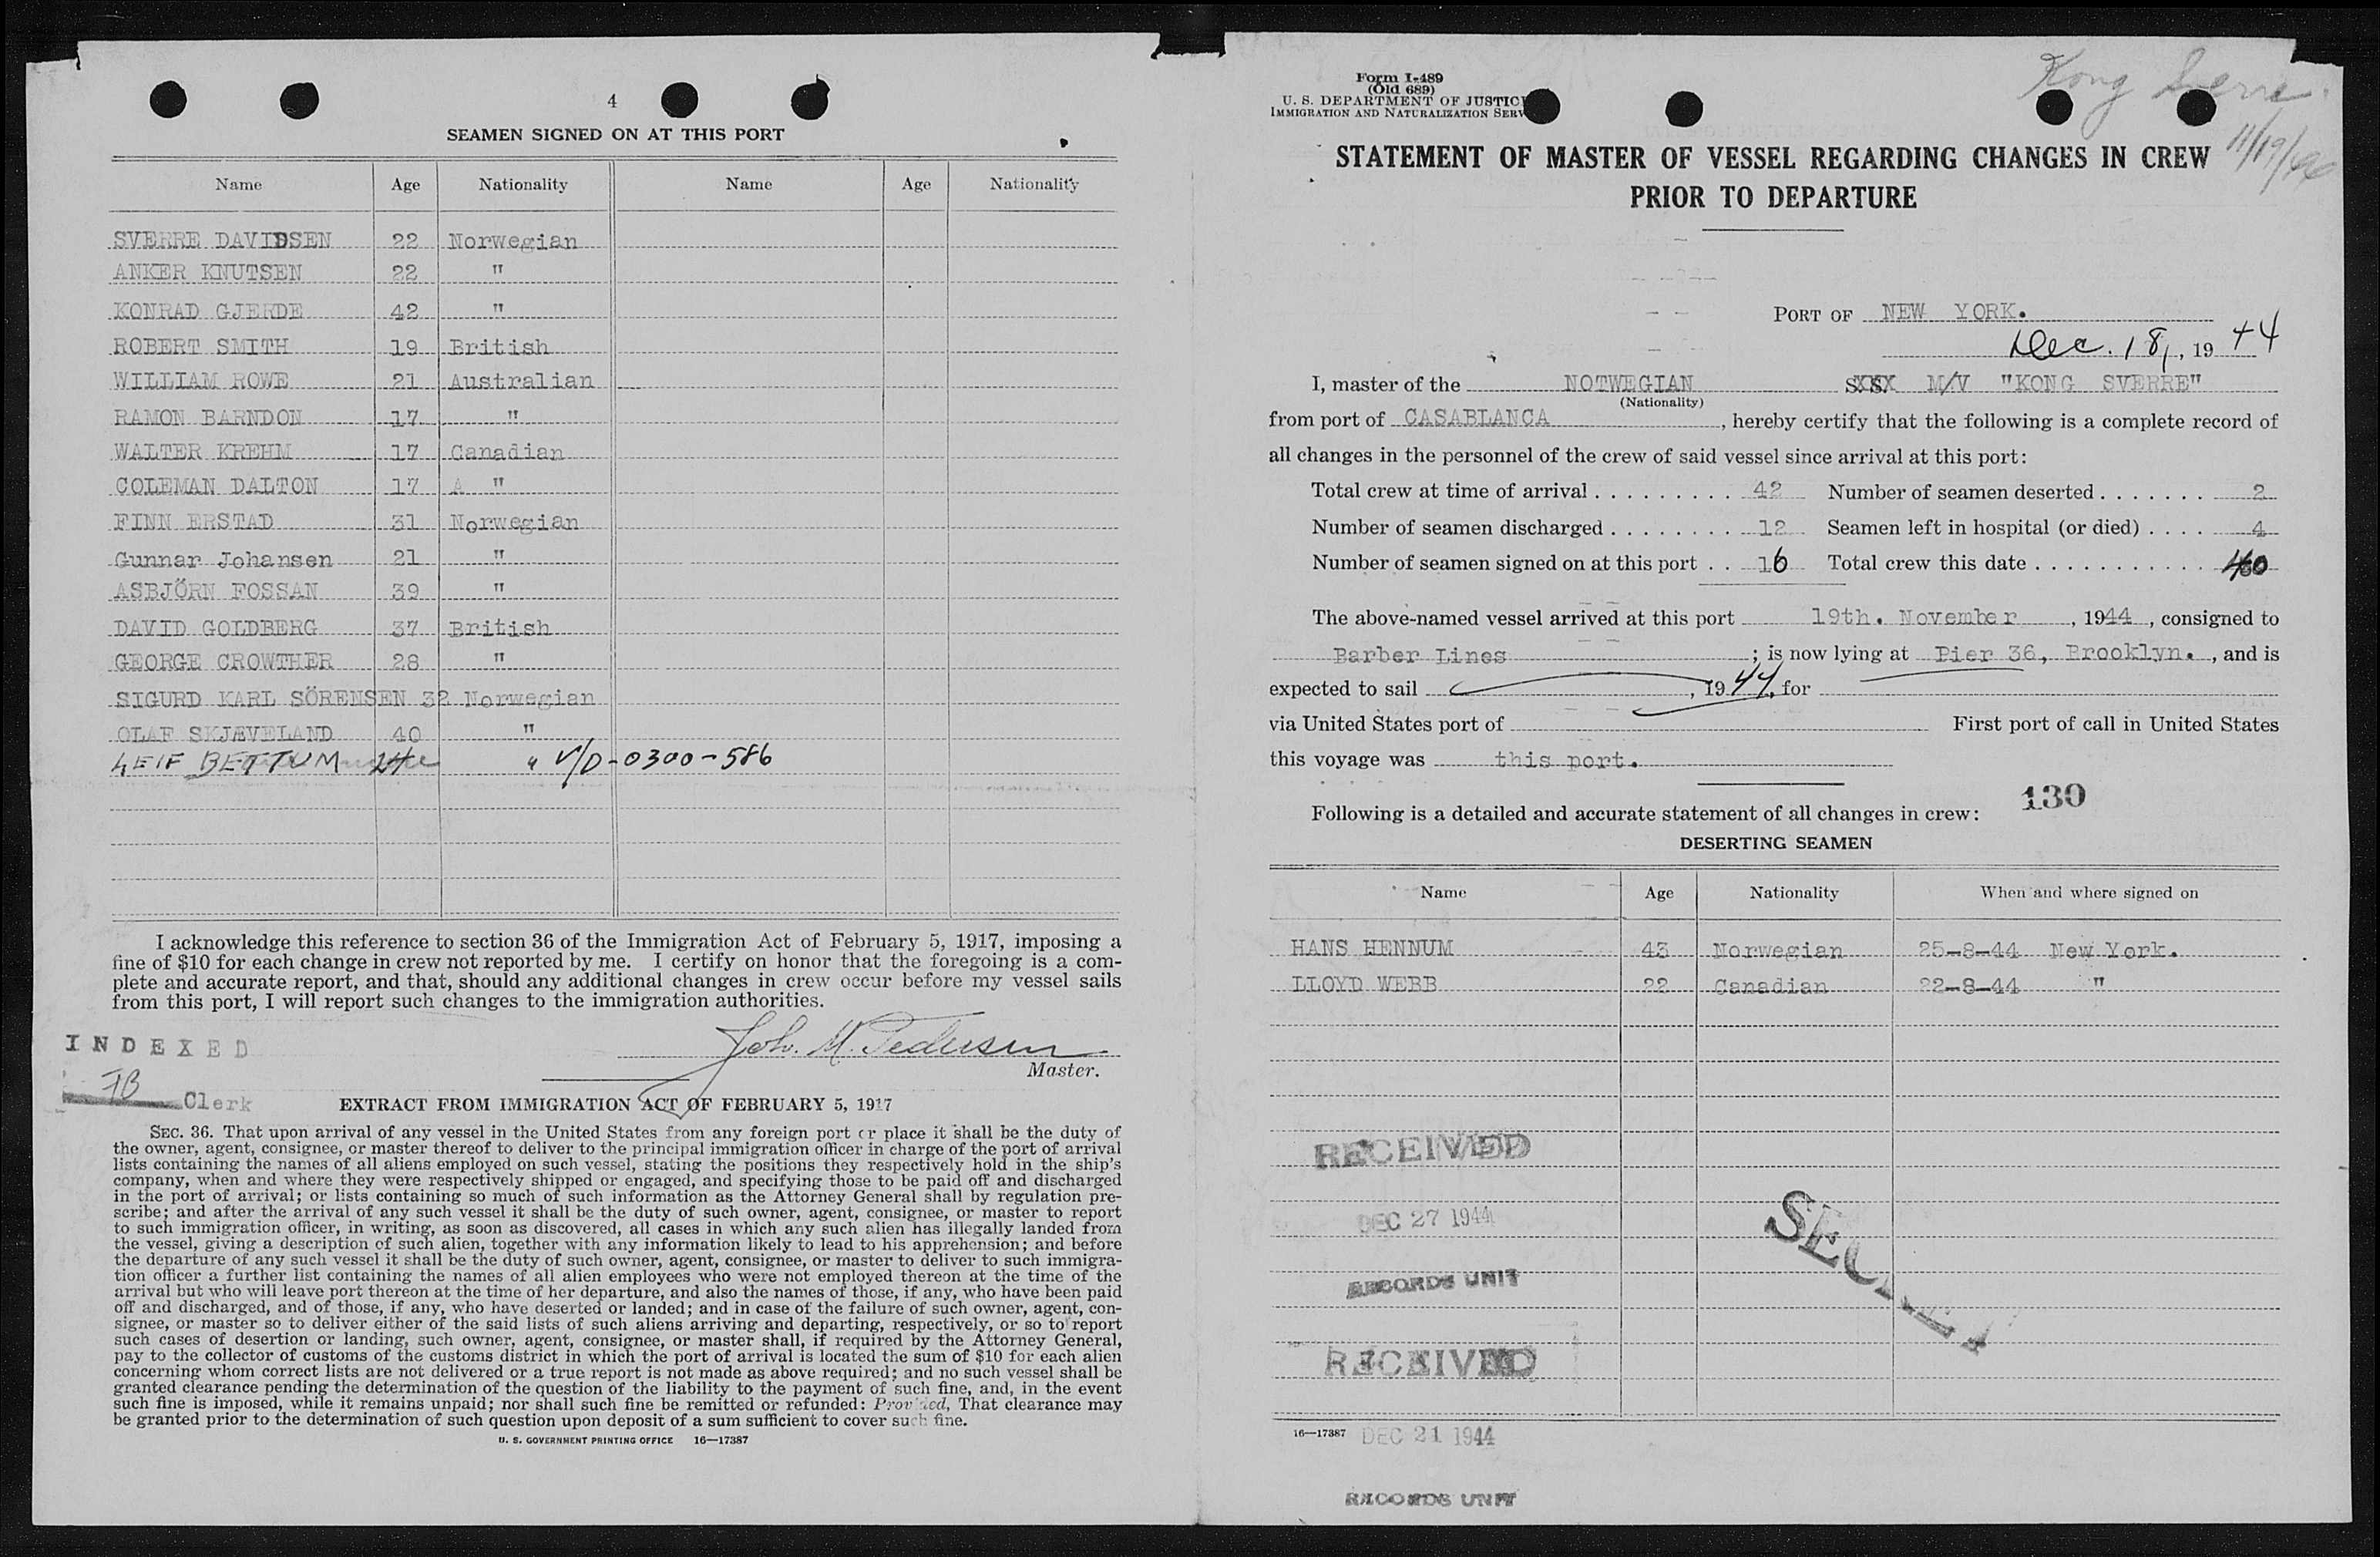 4
SEAMEN SIGNED ON AT THIS PORT
Name Age Nationality Name Age Nationality
SVERRE DAVIDSEN 22 Norwegian
ANKER KNUTSEN 22 "
KONRAD GJERDE 42 "
ROBERT SMITH 19 British
WILLIAM ROWE 21 Australian
RAMON BARNDON 17 "
WALTER KREHM 17 Canadian
COLEMAN DALTON 17 A "
FINN ERSTAD 31 Norwegian
Gunnar Johansen 21 "
ASBJÖRN FOSSAN 39 "
DAVID GOLDBERG 37 British
GEORGE CROWTHER 28 "
SIGURD KARL SÖRENSEN 32 Norwegian
OLAF SKJÆVELAND 40 "
LEIF BETTUM 24 " V/D-0300-586
I acknowledge this reference to section 36 of the Immigration Act of February 5, 1917, imposing a
fine of $10 for each change in crew not reported by me. I certify on honor that the foregoing is a com-
plete and accurate report, and that, should any additional changes in crew occur before my vessel sails
from this port, I will report such changes to the immigration authorities.
INDEXED
Joh. M. Pedersen
Master.
FB Clerk
EXTRACT FROM IMMIGRATION ACT OF FEBRUARY 5, 1917
SEC. 36. That upon arrival of any vessel in the United States from any foreign port or place it shall be the duty of
the owner, agent, consignee, or master thereof to deliver to the principal immigration officer in charge of the port of arrival
lists containing the names of all aliens employed on such vessel, stating the positions they respectively hold in the ship's
company, when and where they were respectively shipped or engaged, and specifying those to be paid off and discharged
in the port of arrival; or lists containing so much of such information as the Attorney General shall by regulation pre-
scribe; and after the arrival of any such vessel it shall be the duty of such owner, agent, consignee, or master to report
to such immigration officer, in writing, as soon as discovered, all cases in which any such alien has illegally landed from
the vessel, giving a description of such alien, together with any information likely to lead to his apprehension; and before
the departure of any such vessel it shall be the duty of such owner, agent, consignee, or master to deliver to such immigra-
tion officer a further list containing the names of all alien employees who were not employed thereon at the time of the
arrival but who will leave port thereon at the time of her departure, and also the names of those, if any, who have been paid
off and discharged, and of those, if any, who have deserted or landed; and in case of the failure of such owner, agent, con-
signee, or master so to deliver either of the said lists of such aliens arriving and departing, respectively, or so to report
such cases of desertion or landing, such owner, agent, consignee, or master shall, if required by the Attorney General,
pay to the collector of customs of the customs district in which the port of arrival is located the sum of $10 for each alien
concerning whom correct lists are not delivered or a true report is not made as above required; and no such vessel shall be
granted clearance pending the determination of the question of the liability to the payment of such fine, and, in the event
such fine is imposed, while it remains unpaid; nor shall such fine be remitted or refunded: Provided, That clearance may
be granted prior to the determination of such question upon deposit of a sum sufficient to cover such fine.
U. S. GOVERNMENT PRINTING OFFICE 16—17387
Form I-489
(Old 689)
U. S. DEPARTMENT OF JUSTIC
IMMIGRATION AND NATURALIZATION SERV
Kong Sverre
11/19/44
STATEMENT OF MASTER OF VESSEL REGARDING CHANGES IN CREW
PRIOR TO DEPARTURE
PORT OF NEW YORK.
Dec. 18, 1944
I, master of the NOTWEGIAN SXSX M/V "KONG SVERRE"
(Nationality)
from port of CASABLANCA, hereby certify that the following is a complete record of
all changes in the personnel of the crew of said vessel since arrival at this port:
Total crew at time of arrival . . . . . . . . . 42 Number of seamen deserted . . . . . . . 2
Number of seamen discharged . . . . . . . . 12 Seamen left in hospital (or died) . . . . 4
Number of seamen signed on at this port . . 16 Total crew this date . . . . . . . . . . . . 40
The above-named vessel arrived at this port 19th. November, 1944, consigned to
Barber Lines; is now lying at Pier 36, Brooklyn., and is
expected to sail , 1944, for
via United States port of First port of call in United States
this voyage was this port.
130
Following is a detailed and accurate statement of all changes in crew:
DESERTING SEAMEN
Name Age Nationality When and where signed on
HANS HENNUM 43 Norwegian 25-8-44 New York.
LLOYD WEBB 22 Canadian 22-8-44 "
RECEIVED
DEC 27 1944
RECORDS UNIT
RECEIVED
16—17387 DEC 21 1944
RECORDS UNIT